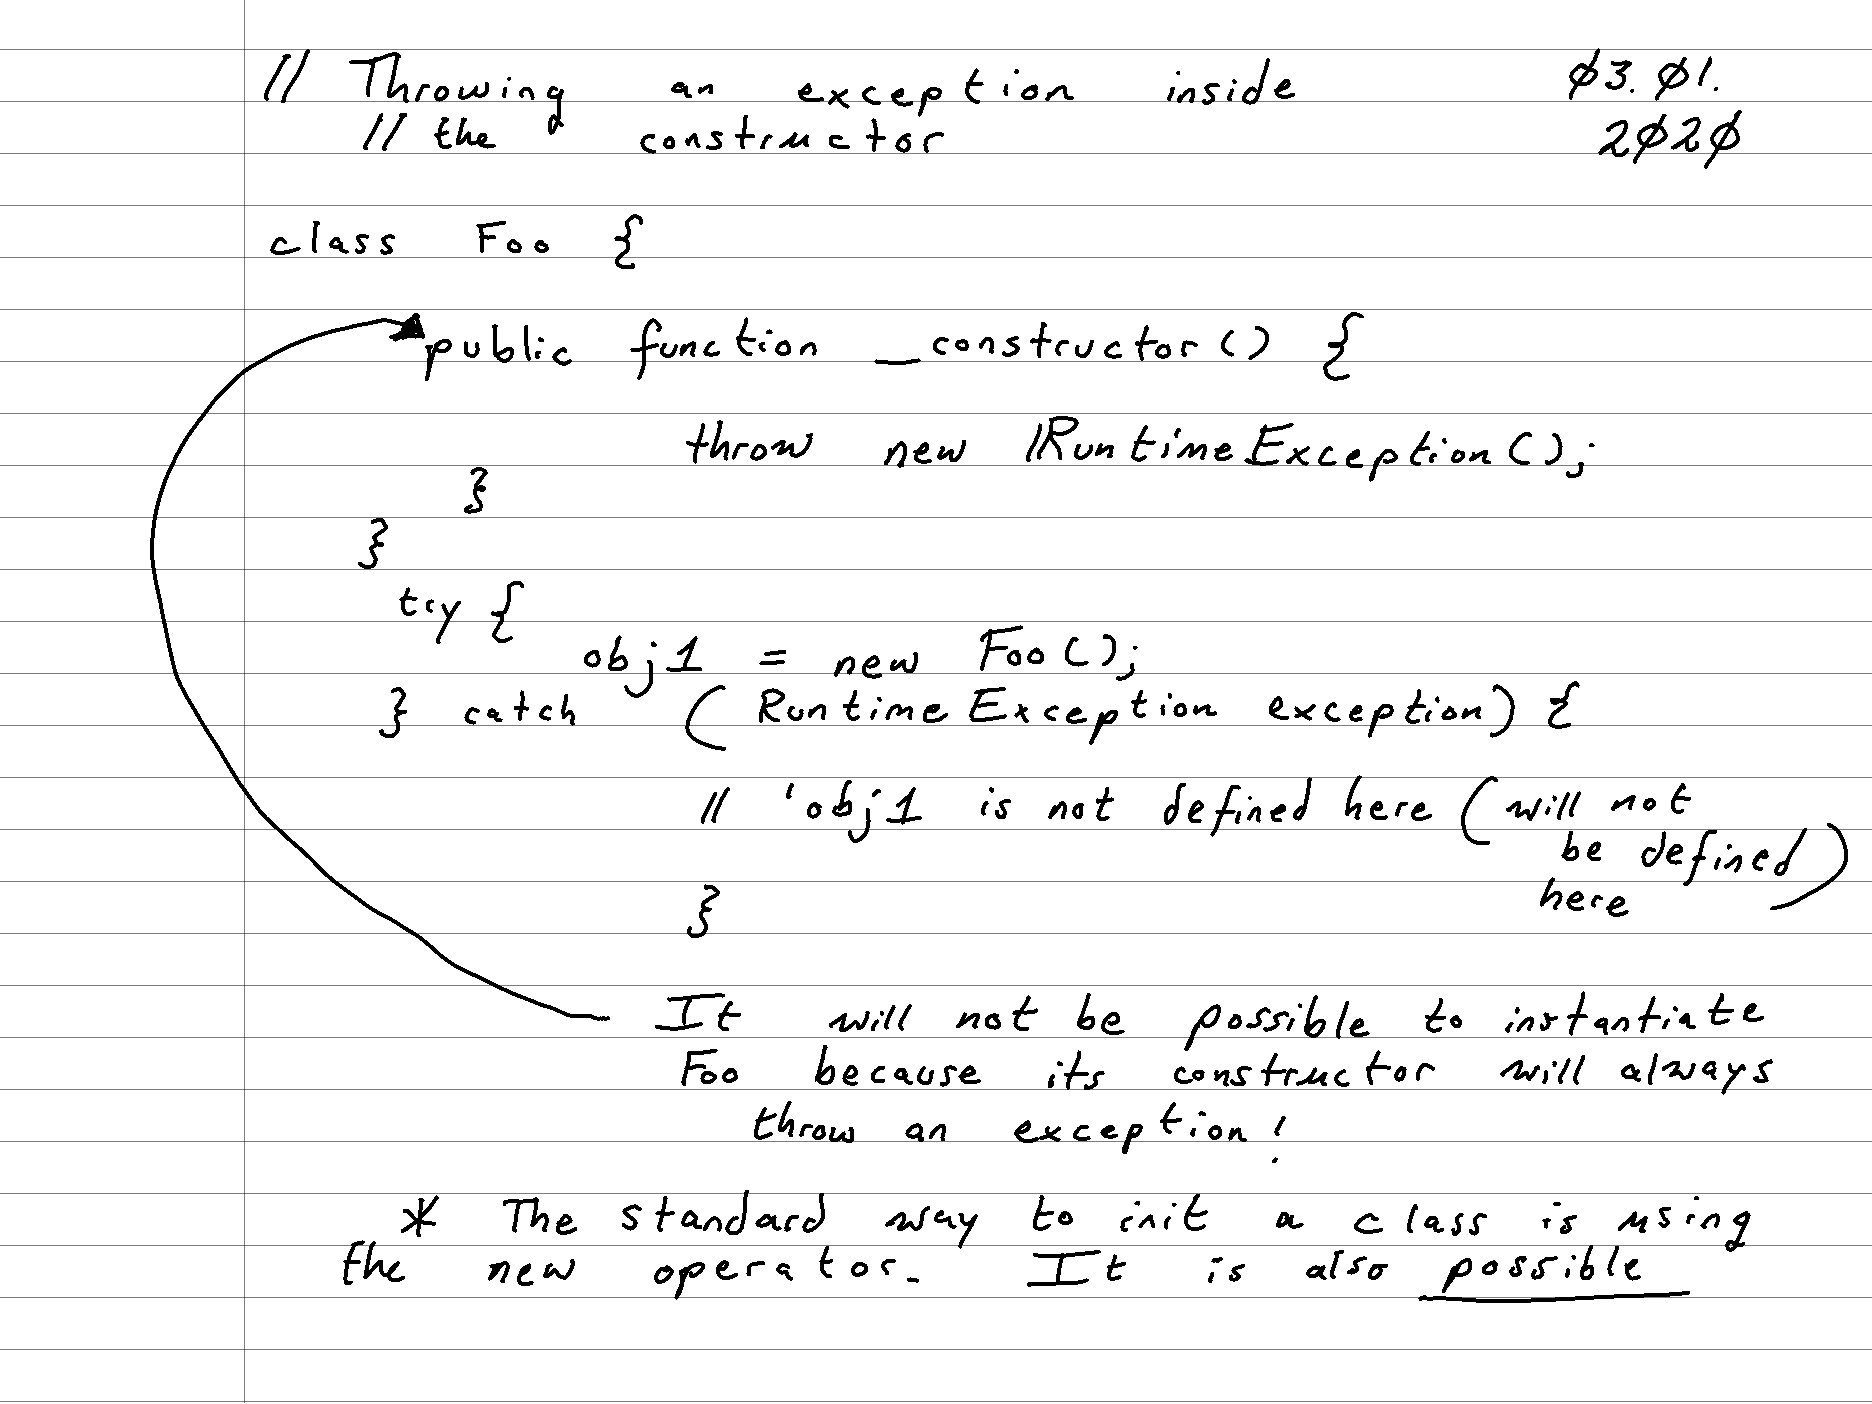 // Throwing an exception inside 03.01.
// the constructor 2020
class Foo {
public function _constructor() {
throw new \RuntimeException();
}
}
try {
obj1 = new Foo();
} catch (RuntimeException exception) {
// 'obj1 is not defined here (will not
be defined)
here
}
It will not be possible to instantiate
Foo because its constructor will always
throw an exception!
* The standard way to init a class is using
the new operator. It is also possible